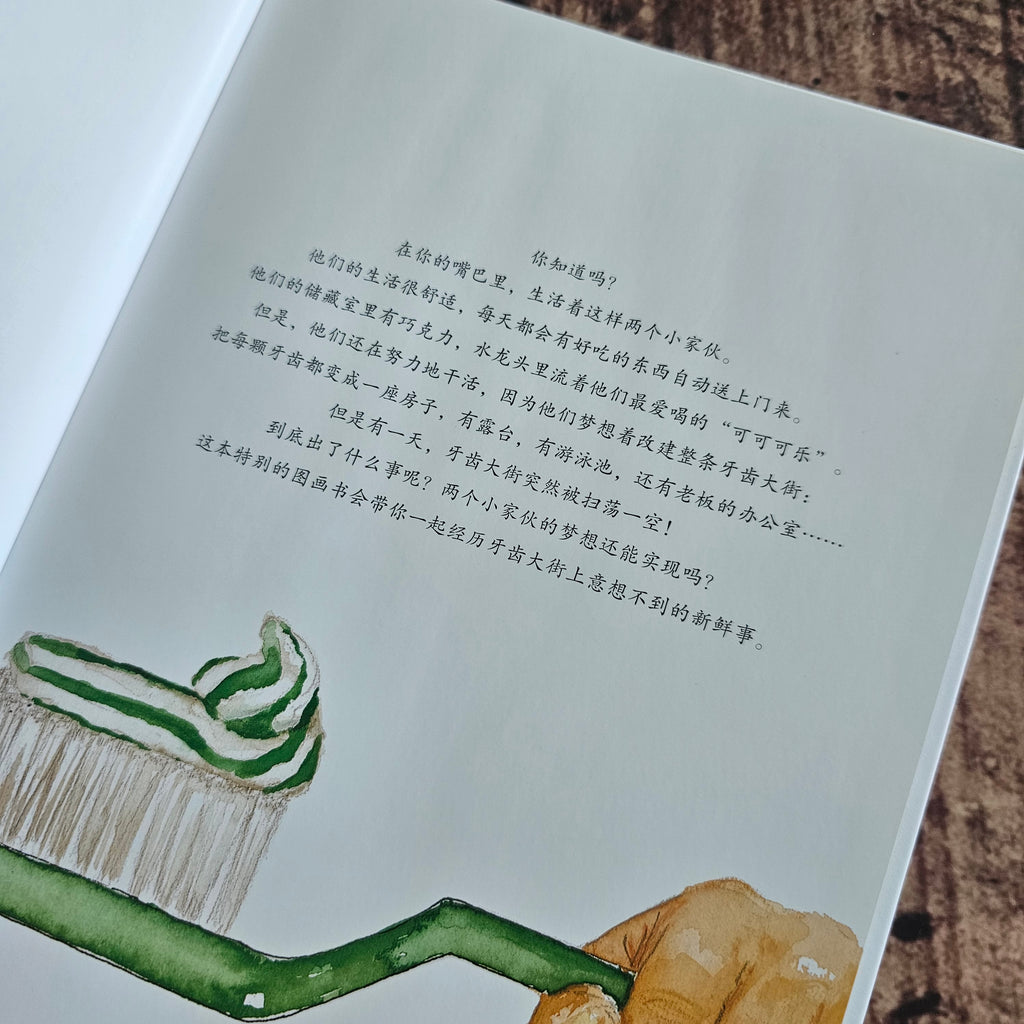 你知道吗？
在你的嘴巴里，生活着这样两个小家伙。
他们的生活很舒适，每天都会有好吃的东西自动送上门来。
他们的储藏室里有巧克力，水龙头里流着他们最爱喝的“可可可乐”。
但是，他们还在努力地干活，因为他们梦想着改建整条牙齿大街：
把每颗牙齿都变成一座房子，有露台，有游泳池，还有老板的办公室……
但是有一天，牙齿大街突然被扫荡一空！
到底出了什么事呢？两个小家伙的梦想还能实现吗？
这本特别的图画书会带你一起经历牙齿大街上意想不到的新鲜事。